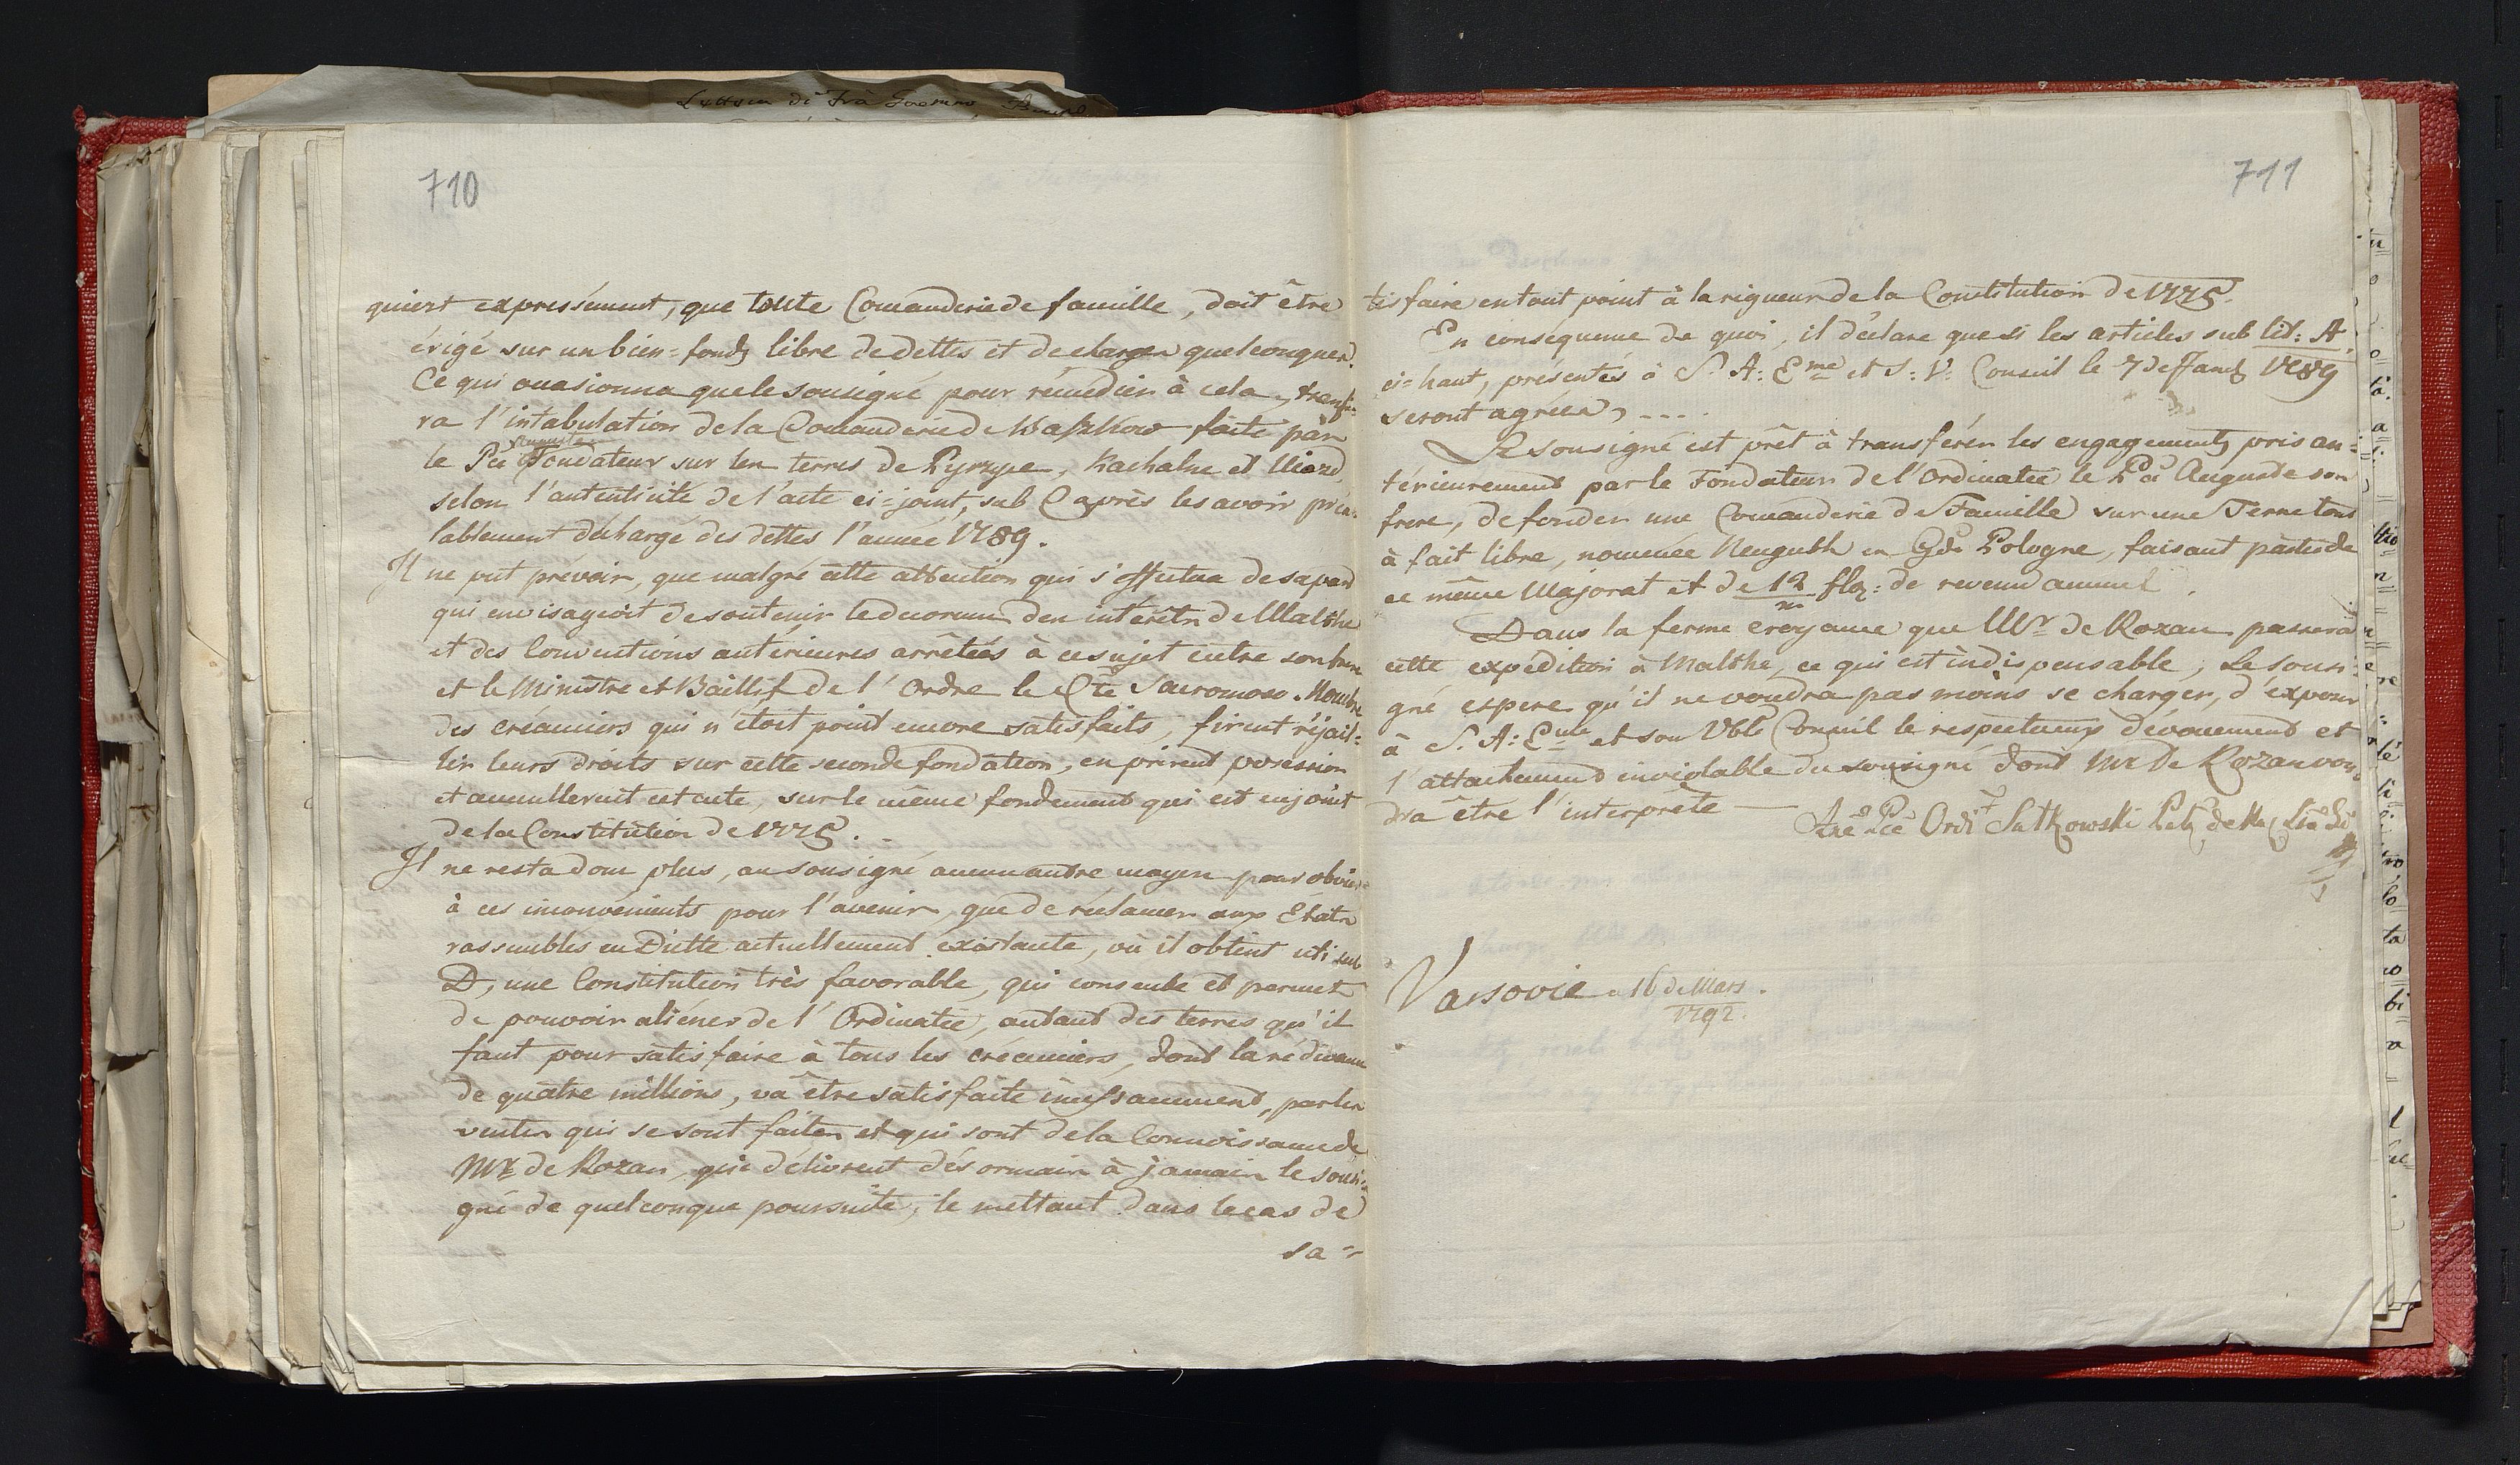 Lettera di Frà
710
quiert expressément, que toute Comanderie de famille, doit être
érigé sur un bien=fonds libre de dettes et de charges quelconques.
Ce qui ocasionna que le sousigné pour rémedier à cela, transfe=
ra l'intabulation de la Comanderie de Waszkow faite par
Auguste
le Pce Fondateur sur les terres de Pyrzyce, Kachalne et
selon l'autenticité de l'acte ci=joint, sub C après les avoir préa=
lablement déchargé des dettes l'année 1789.
Il ne put prévoir, que malgré cette attention qui s'effectua de sa part
qui envisageoit de soutenir le decorum des intérêts de Malthe
et des Conventions antérieures arrêtées à ce sujet entre son frere
et le Ministre et Baillif de l'Ordre le Cte Sacromoso. Nombre
des créanciers qui n'étoit point encore satisfaits, firent réjail=
lir leurs droits sur cette seconde fondation, en prirent posession
et annullerent cet acte, sur le même fondement qui est enjoint
de la Constitution de 1775.
Il ne resta donc plus, au sousigné aucun autre moyen pour obvier
à ces inconvénients pour l'avenir, que de réclamer aux Etats
rassemblés en Diette actuellement existante, où il obtint uti sub
D, une Constitution très favorable, qui consente et permet
de pouvoir aliéner de l'Ordinatie, autant des terres qu'il
faut pour satisfaire à tous les créanciers, dont la rédevance
de quatre millions, va être satisfaite incessamment, par les
ventes qui se sont faites et qui sont de la Connoissance de
Mr de Rozan, qui délivrent désormais à jamais le sousi=
gné de quelconque poursuite, le mettant dans le cas de
sa=
711
tisfaire en tout point à la rigueur de la Constitution de 1775.
En conséquence de quoi, il déclare que si les articles sub lit: A.
ci=haut, présentés à S. A: Eme et S: V: Conseil le 7 de Janv 1789
seront agréés, ....
Le sousigné est prêt à transférer les engagements pris an=
térieurement par le Fondateur de l'Ordinatie le Pce Auguste son
frere, de fonder une Comanderie de Famille sur une Terre tout
à fait libre, nommée Neuguth en Gde Pologne, faisant partie de
ce même Majorat et de 12/m flz: de revenu annuel.
Dans la ferme croyance que Mr de Rozan passera
cette expédition à Malthe, ce qui est indispensable, Le sousi=
gné espere qu'il ne voudra pas moins se charger, d'exposer
à S. A: Eme et son Vble Conseil le respectueux dévouement et
l'attachement inviolable du sousigné dont Mr de Rozan vou=
dra être l'interpréte Pce Ordt Sulkowski
Varsovie 16 de Mars.
1792.